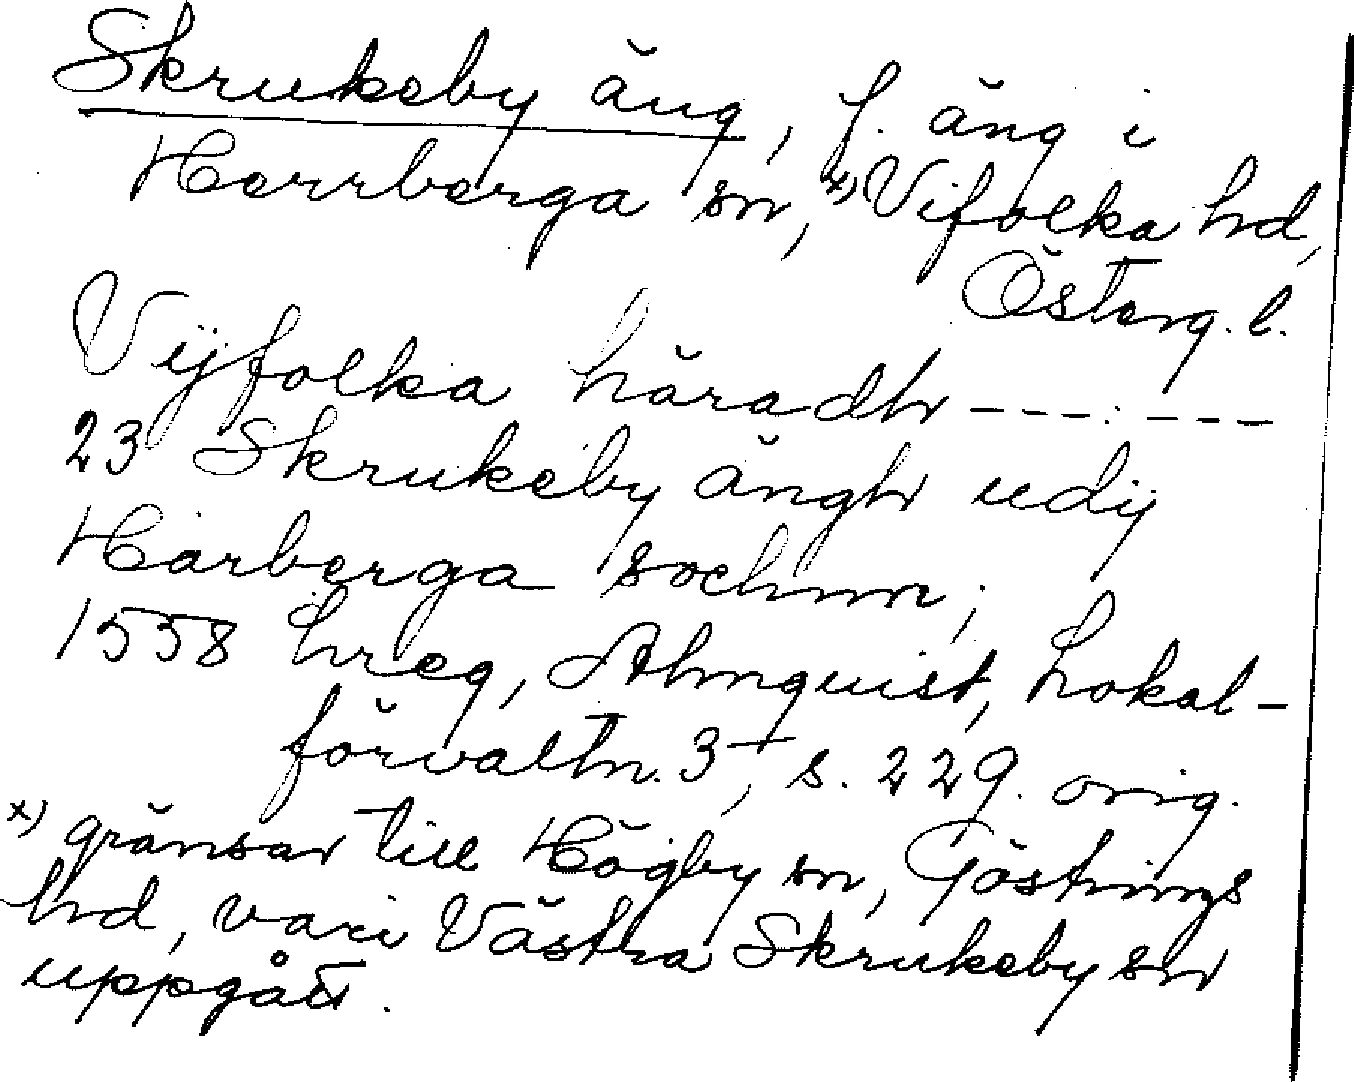 Skrukeby äng, f. äng i
Herrberga sn, x) Vifolka hd,
Österg. l.
Vijfolka häradh - - - - - - -
23 Skrukeby ängh udij
Härberga sochnn;
1558 hreg, Almquist, Lokal-
förvaltn. 3, s. 229. orig.
x) gränsar till Högby sn, Göstrings
hd, vari Västra Skrukeby sn
uppgått.